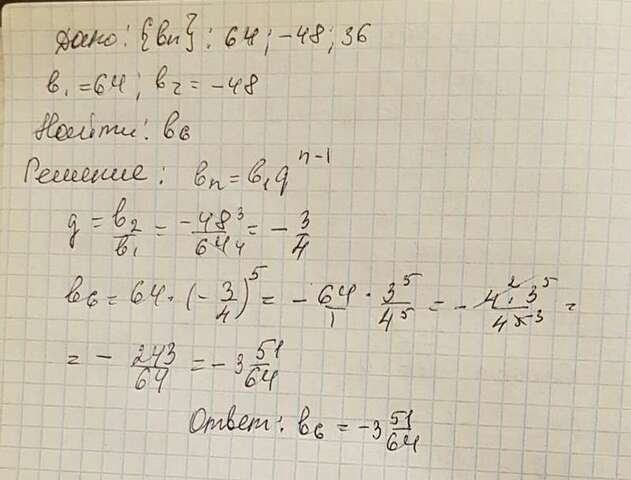 Дано: {bn}: 64; -48; 36
b₁ = 64; b₂ = -48
Найти: b₆
Решение: bₙ = b₁q^(n-1)
q = b₂/b₁ = -48³/64₄ = -3/4
b₆ = 64 · (-3/4)^5 = -64/1 · 3^5/4^5 = -4^2 · 3^5/4^5 3 =
= -243/64 = -3 51/64
Ответ: b₆ = -3 51/64